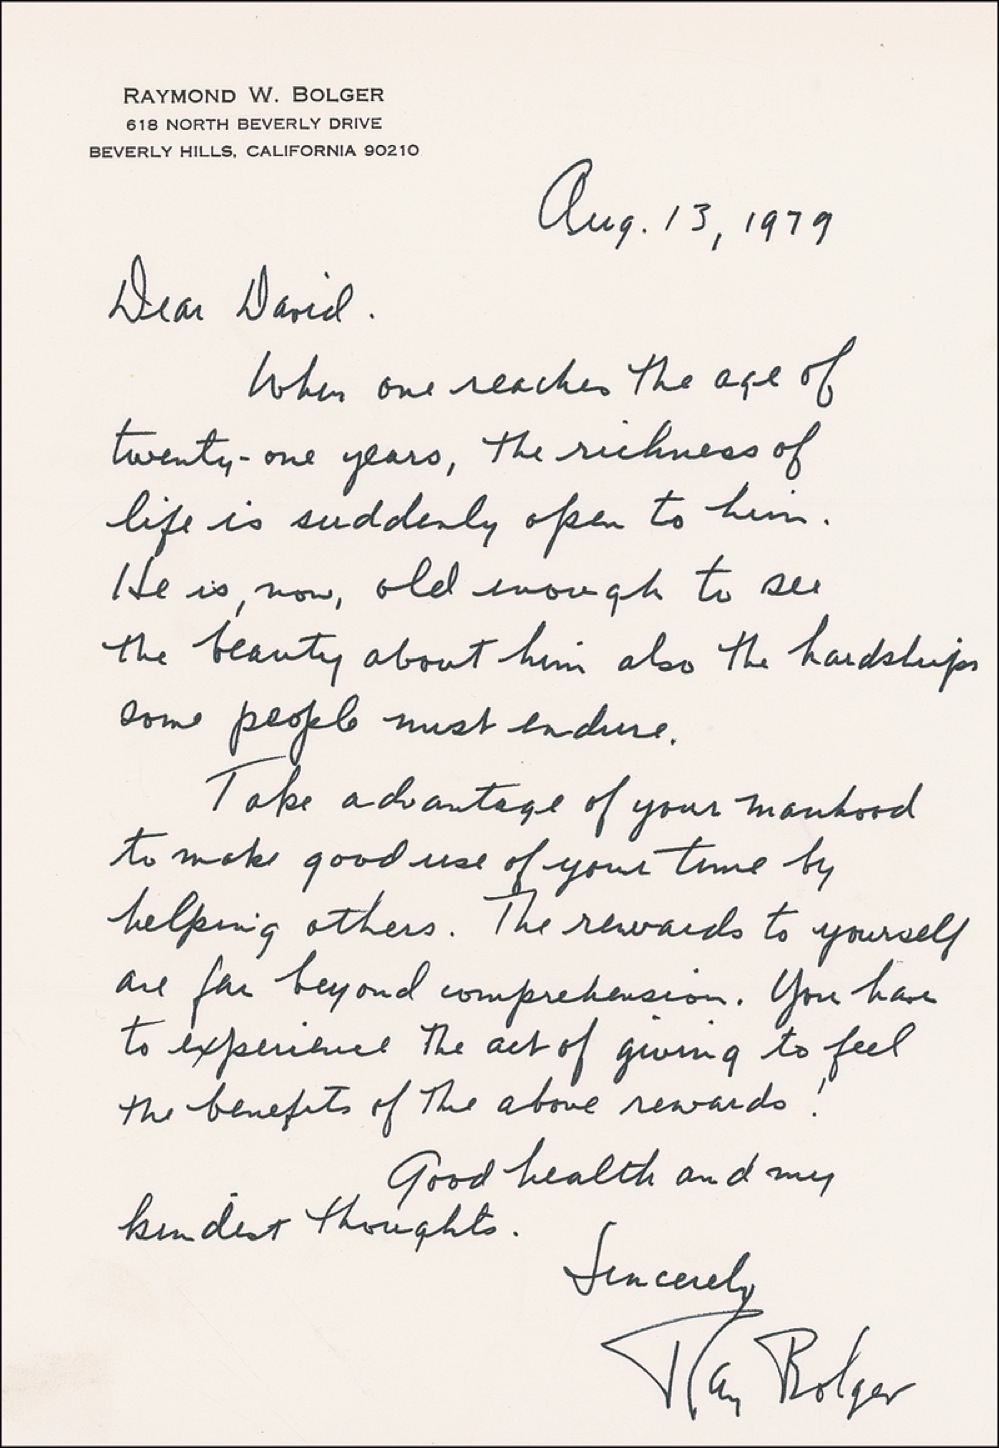 RAYMOND W. BOLGER
618 NORTH BEVERLY DRIVE
BEVERLY HILLS, CALIFORNIA 90210
Aug. 13, 1979
Dear David.
When one reaches the age of
twenty-one years, the richness of
life is suddenly open to him.
He is, now, old enough to see
the beauty about him also the hardships
some people must endure.
Take advantage of your manhood
to make good use of your time by
helping others. The rewards to yourself
are far beyond comprehension. You have
to experience the act of giving to feel
the benefits of the above rewards!
Good health and my
kindest thoughts.
Sincerely
Ray Bolger